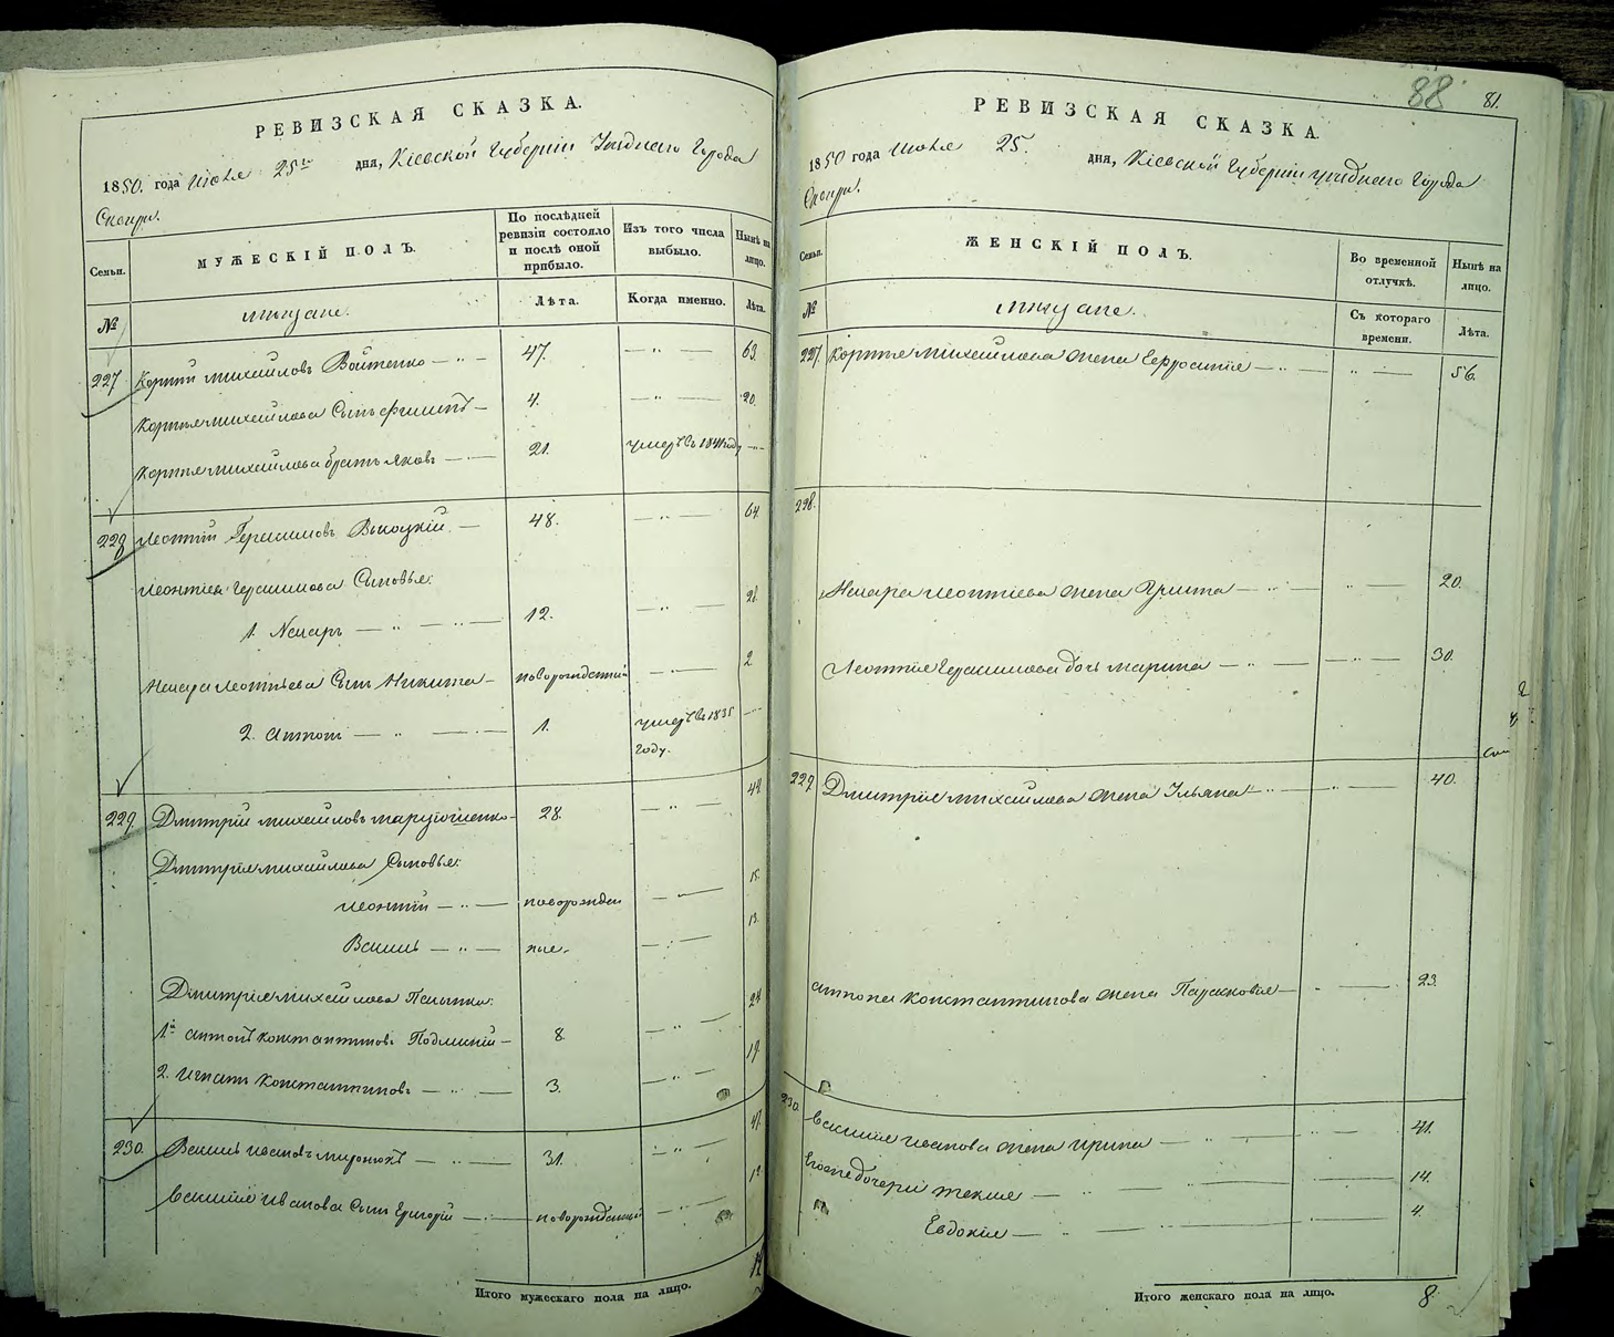 РЕВИЗСКАЯ СКАЗКА.
1850. года Июля 25го дня, Кіевской Губерніи Уѣзднаго Города
Сквиры.
Семьи.
МУЖЕСКІЙ ПОЛЪ.
По послѣдней ревизіи состояло и послѣ оной прибыло.
Изъ того числа выбыло.
Нынѣ на лицо.
№
Мѣщане.
Лѣта.
Когда именно.
Лѣта.
227 Корній Михайловъ Войтенко — " — 47. — " — 63.
Корнія Михайлова Сынъ Филипъ — 4. — " — 20.
Корнія Михайлова братъ Яковъ — 21. умер. въ 1841 году — " —
228 Леонтій Герасимовъ Высоцкій — 48. — " — 64.
Леонтія Герасимова Сыновья:
1. Назаръ — " — " — 12. — " — 28.
Назара Леонтьева Сынъ Никита — новорожденный — " — 2
2. Антонъ — " — 1. умер. въ 1835 — " —
году.
229. Дмитрій Михайловъ — 28. — " — 44.
Дмитрія Михайлова Сыновья:
Леонтій — " — новорожден — " — 15.
Василь — " — ные. — " — 13.
Дмитрія Михайлова
1й Антонъ Константиновъ — 8. — " — 24.
2. Игнатъ Константиновъ — " — 3. — " — 19.
230. Василь Ивановъ Миронюкъ — " — 31. — " — 47.
Василія Иванова Сынъ Григорій — новорожденный — " —
Итого мужескаго пола на лицо. 12
88 81.
РЕВИЗСКАЯ СКАЗКА.
1850 года Июля 25. дня, Кіевской Губерніи уѣзднаго Города
Сквиры.
Семьи.
ЖЕНСКІЙ ПОЛЪ.
Во временной отлучкѣ.
Нынѣ на лицо.
№
Мѣщане.
Съ котораго времени.
Лѣта.
227. Корнія Михайлова жена Ефросинія — " — " — 56.
228.
Назара Леонтіева жена — " — " — 20.
Леонтія Герасимова дочь Марина — " — " — 30.
229 Дмитрія Михайлова жена Ульяна — " — " — 40.
Антона Константинова жена Парасковія — " — 23.
230. Василія Иванова жена Ирина — " — " — 41.
Его же дочери Текля — " — " — 14.
Евдокія — " — 4.
Итого женскаго пола на лицо. 8